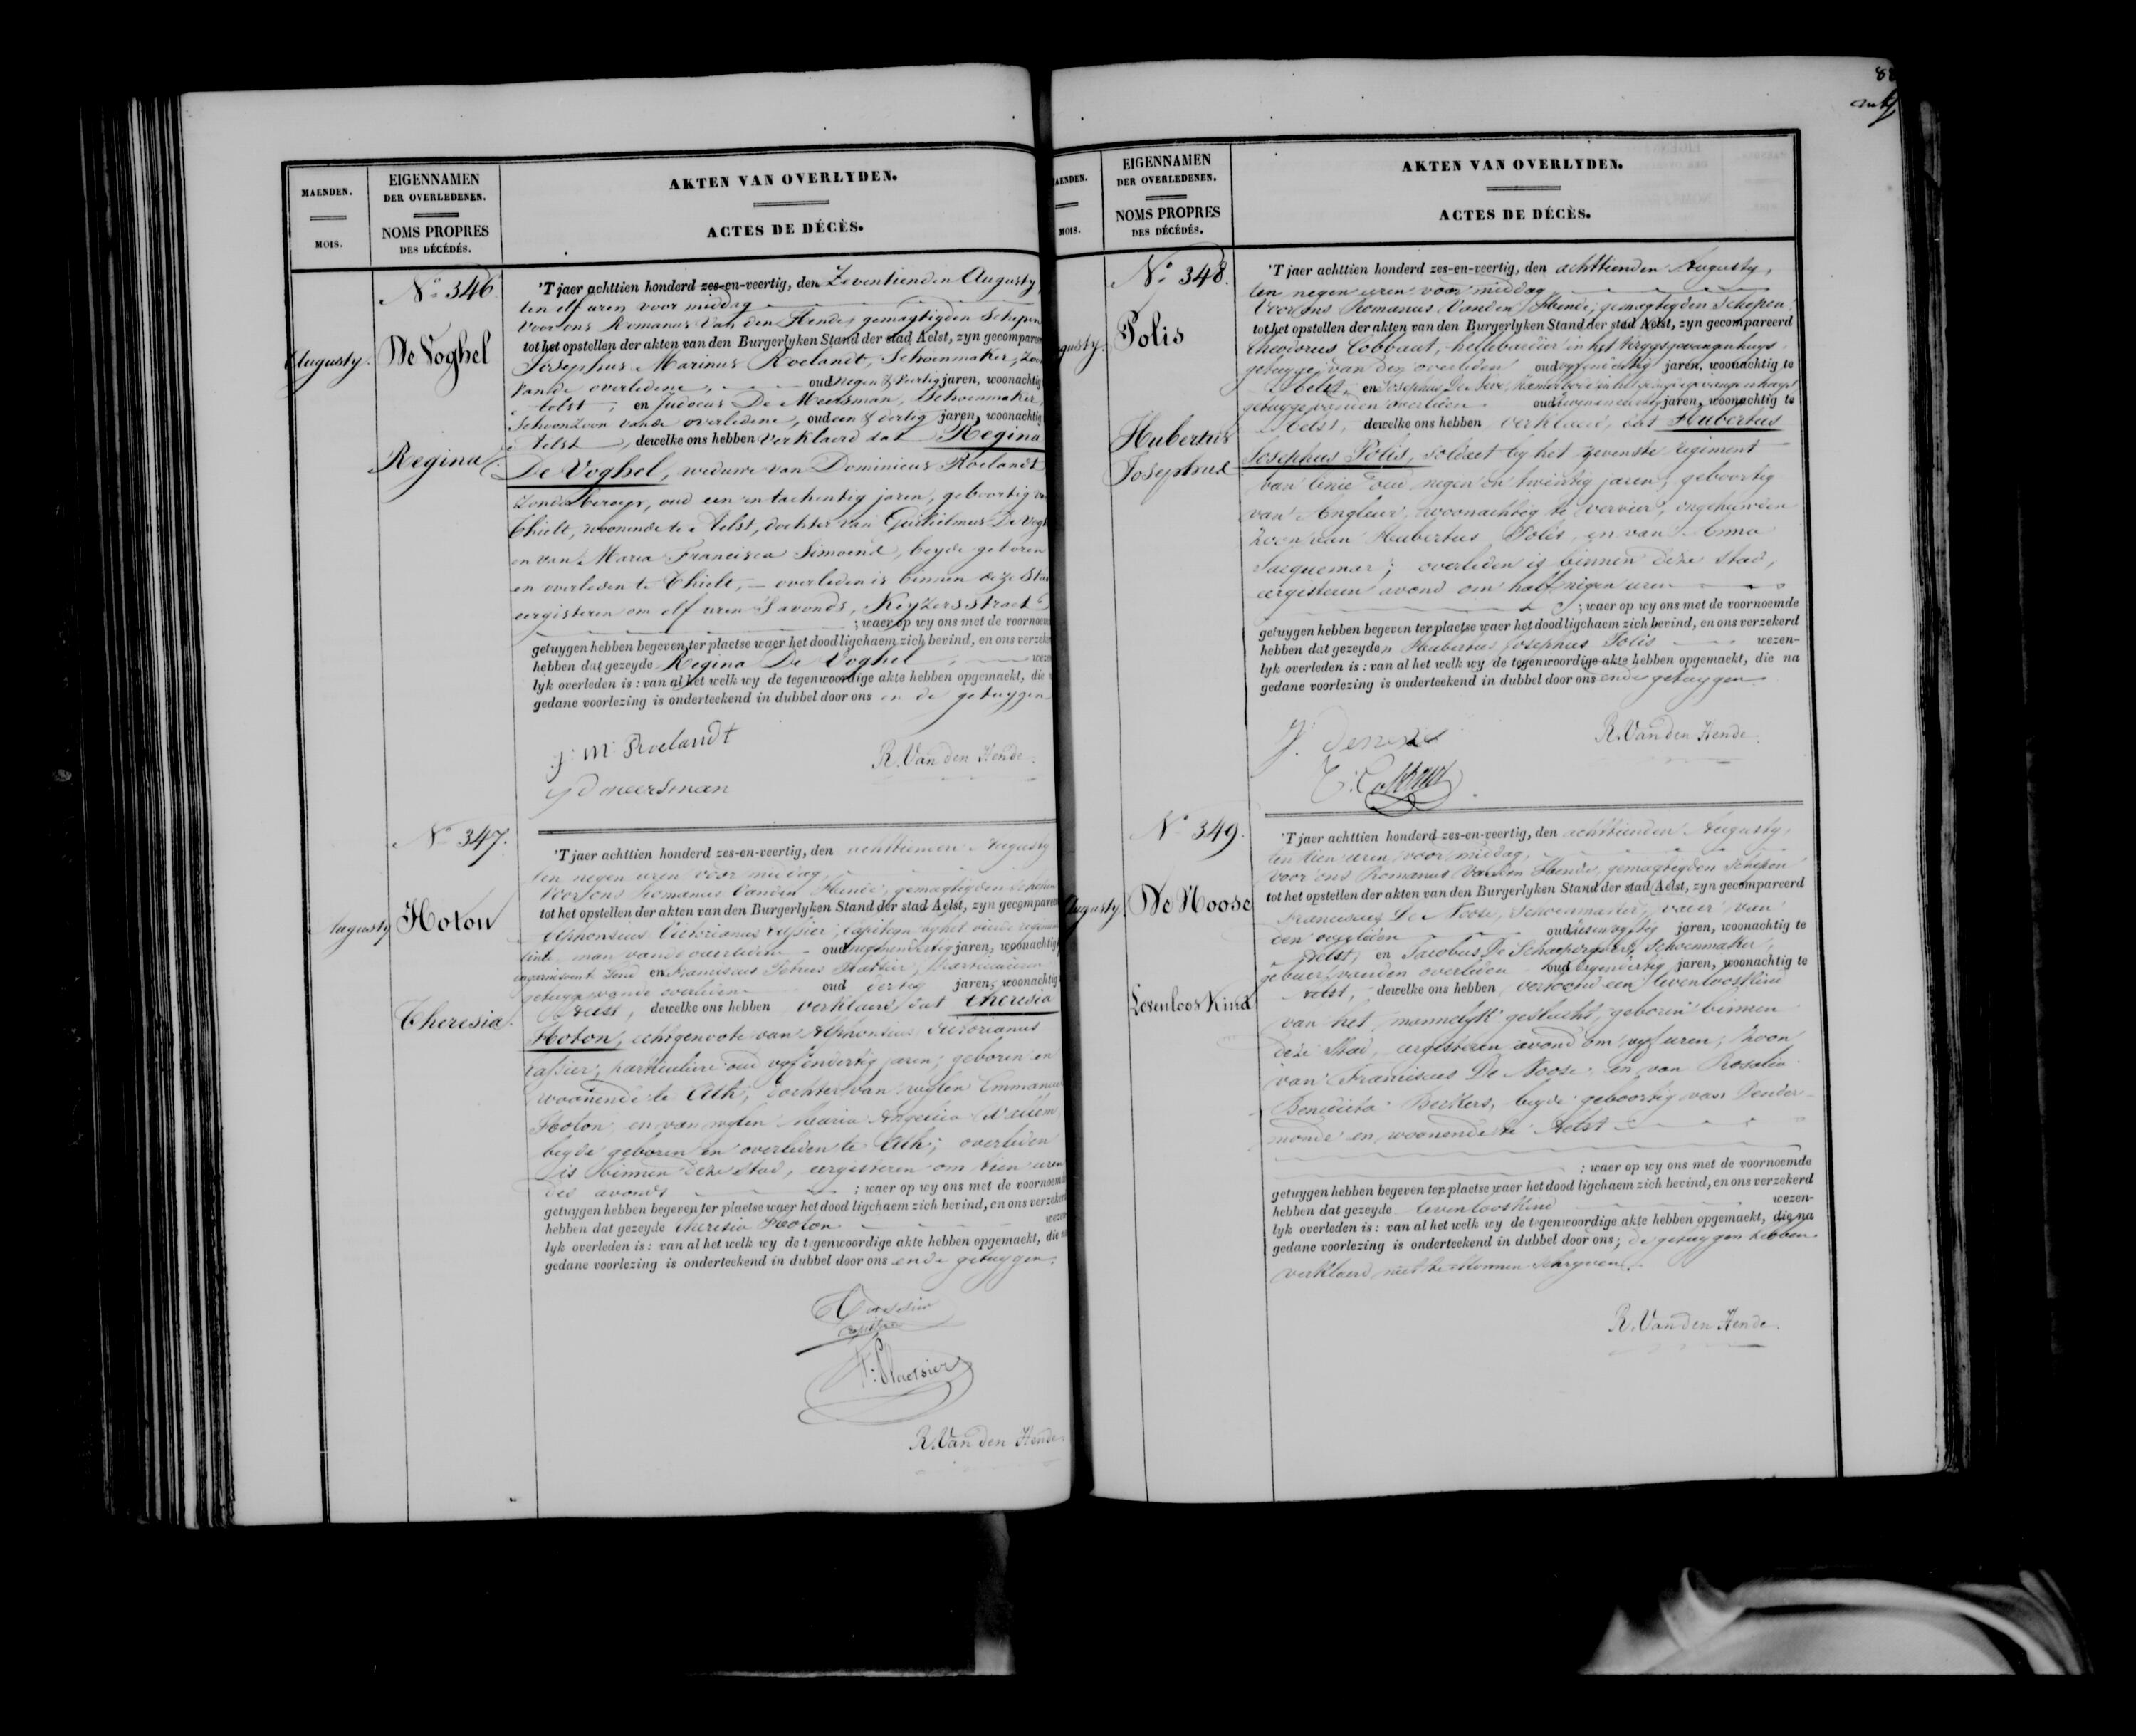 MAENDEN.
MOIS.
EIGENNAMEN
DER OVERLEDENEN.
NOMS PROPRES
DES DÉCÉDÉS.
AKTEN VAN OVERLYDEN.
ACTES DE DÉCÈS.
No 346.
Augusty.
De Voghel
Regina
'T jaer achttien honderd zes-en-veertig, den Zeventienden Augusty,
ten elf uren voor middag
Voor ons Romanus Van den Hende, gemagtigden Schepen
tot het opstellen der akten van den Burgerlyken Stand der stad Aelst, zyn gecompareer
Josephus Marinus Roelandt, Schoenmaker, Zoon
van de overledene, oud negen & veertig jaren, woonachtig
Aelst, en Judocus De Meersman, Schoenmaker,
Schoonzoon van de overledene, oud een & dertig jaren, woonachtig
Aelst, dewelke ons hebben verklaerd dat Regina
De Voghel, weduwe van Dominicus Roelandt
zonder beroep, oud een en tachentig jaren, geboortig van
Thielt, woonende te Aelst, dochter van Guilielmus De Vogh
en van Maria Francisca Simoens, beyde geboren
en overleden te Thielt, overleden is binnen deze Stad
eergisteren om elf uren 's avonds, Keyzersstraet
; waer op wy ons met de voornoem
getuygen hebben begeven ter plaetse waer het dood ligchaem zich bevind, en ons verzeke
hebben dat gezeyde Regina De Voghel weze
lyk overleden is : van al het welk wy de tegenwoordige akte hebben opgemaekt, die
gedane voorlezing is onderteekend in dubbel door ons en de getuygen
J: M: Roelandt
R. Van den Hende.
J D meersman
No 347.
Augusty
Hoton
Theresia.
'T jaer achttien honderd zes-en-veertig, den achttienden Augusty
ten negen uren voor middag
Voor ons Romanus Vanden Hende, gemagtigden Schepen
tot het opstellen der akten van den Burgerlyken Stand der stad Aelst, zyn gecomparee
Alphonsius Victorianus, Capitein by het vierde regiment
linie man van de overledene oud negenendertig jaren, woonachtig
en Franciscus Petrus Plaetsier, Particulieren
getuyge van de overledene oud dertig jaren, woonachtig
Aelst, dewelke ons hebben verklaerd, dat Theresia
Hoton, echtgenoote van Alphonsius Victorianus
particuliere oud vyfendertig jaren, geboren en
woonende te Ath, dochter van wylen Emmanuel
Hoton, en van wylen Maria Angelica
beyde geboren en overleden te Ath; overleden
is binnen deze Stad, eergisteren om tien uren
des avonds ; waer op wy ons met de voornoemde
getuygen hebben begeven ter plaetse waer het dood ligchaem zich bevind, en ons verzeker
hebben dat gezeyde Theresia Hoton wezen
lyk overleden is : van al het welk wy de tegenwoordige akte hebben opgemaekt, die
gedane voorlezing is onderteekend in dubbel door ons ende getuygen.
F: Plaetsier
R. Van den Hende.
MAENDEN.
MOIS.
EIGENNAMEN
DER OVERLEDENEN.
NOMS PROPRES
DES DÉCÉDÉS.
AKTEN VAN OVERLYDEN.
ACTES DE DÉCÈS.
No 348.
Augusty.
Polis
Hubertus
Josephus
'T jaer achttien honderd zes-en-veertig, den achttienden Augusty,
ten negen uren voor middag
Voor ons Romanus Vanden Hende, gemagtigden Schepen
tot het opstellen der akten van den Burgerlyken Stand der stad Aelst, zyn gecompareerd
Theodorus Cobbaut, hellebardier in het krygsgevangenhuys,
getuyge van den overleden oud jaren, woonachtig te
Aelst, en Josephus De Neve,
getuyge van den overleden oud jaren, woonachtig te
Aelst, dewelke ons hebben verklaerd, dat Hubertus
Josephus Polis, soldaet by het zevenste regiment
van linie oud negen en twintig jaren, geboortig
van Angleur, woonachtig te Vervier, ongehuwden
zoon van Hubertus Polis, en van Anna
Jacquemar; overleden is binnen deze Stad,
eergisteren avond om half negen uren
; waer op wy ons met de voornoemde
getuygen hebben begeven ter plaetse waer het dood ligchaem zich bevind, en ons verzekerd
hebben dat gezeyden Hubertus Josephus Polis wezen-
lyk overleden is : van al het welk wy de tegenwoordige akte hebben opgemaekt, die na
gedane voorlezing is onderteekend in dubbel door ons ende getuygen.
R. Van den Hende.
No 349.
Augusty
De Noose
Levenloos Kind
'T jaer achttien honderd zes-en-veertig, den achttienden Augusty,
ten tien uren voor middag,
voor ons Romanus Vanden Hende, gemagtigden Schepen
tot het opstellen der akten van den Burgerlyken Stand der stad Aelst, zyn gecompareerd
Franciscus De Noose, Schoenmaker, vader van
den overleden oud jaren, woonachtig te
Aelst, en Jacobus De Schaepdryver, Schoenmaker,
gebuer van den overleden oud jaren, woonachtig te
Aelst, dewelke ons hebben vertoond een Levenloos Kind
van het mannelyk geslacht, geboren binnen
deze Stad, eergisteren avond om vyf uren, Zoon
van Franciscus De Noose en van Rosalia
Benedicta Beckers, beyde geboortig van Dender-
monde en woonende te Aelst
; waer op wy ons met de voornoemde
getuygen hebben begeven ter plaetse waer het dood ligchaem zich bevind, en ons verzekerd
hebben dat gezeyde Levenloos Kind wezen-
lyk overleden is : van al het welk wy de tegenwoordige akte hebben opgemaekt, die na
gedane voorlezing is onderteekend in dubbel door ons; de getuygen hebben
verklaerd niet te konnen schryven.
R. Van den Hende.